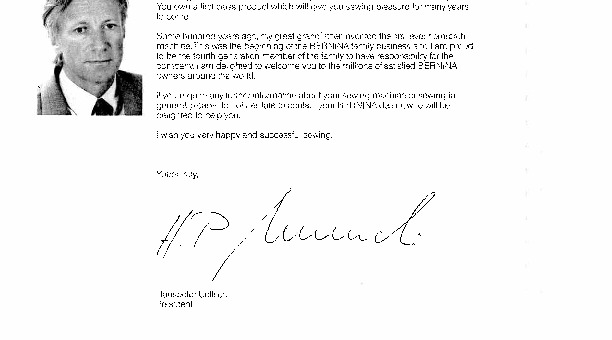 You own a first class product which will give you sewing pleasure for many years
to come.
Some hundred years ago, my great grandfather invented the first ever hemstitch
machine. This was the beginning of the BERNINA family business and I am proud
to be the fourth generation member of the family to have responsibility for the
company. I am delighted to welcome you to the millions of satisfied BERNINA
owners around the world.
If you require any further information about your sewing machine or sewing in
general please do not hesitate to contact your BERNINA dealer, who will be
delighted to help you.
I wish you very happy and successful sewing.
Yours truly,
H.P.
President